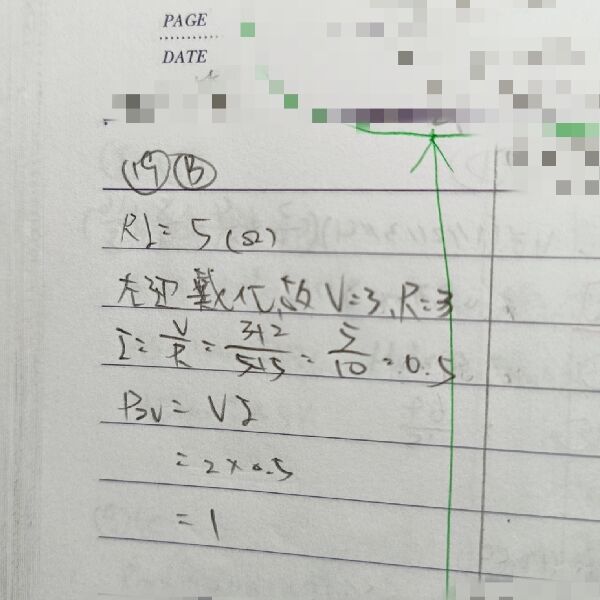 PAGE
DATE
19 B
RI = 5 (Ω)
左迴戴代效 V=3, R=3
I = V/R = 3+2/5+5 = 5/10 = 0.5
P3V = VI
= 2 × 0.5
= 1